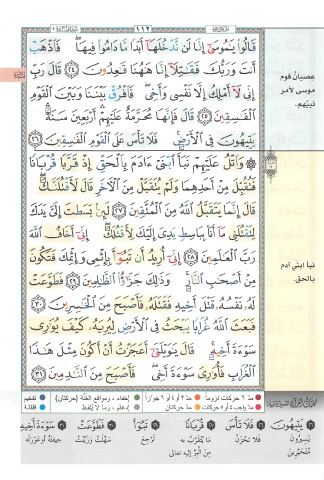 ١١٢
قَالُوا۟ يَـٰمُوسَىٰٓ إِنَّا لَن نَّدْخُلَهَآ أَبَدًا مَّا دَامُوا۟ فِيهَا ۖ فَٱذْهَبْ
أَنتَ وَرَبُّكَ فَقَـٰتِلَآ إِنَّا هَـٰهُنَا قَـٰعِدُونَ ﴿٢٤﴾ قَالَ رَبِّ
إِنِّى لَآ أَمْلِكُ إِلَّا نَفْسِى وَأَخِى ۖ فَٱفْرُقْ بَيْنَنَا وَبَيْنَ ٱلْقَوْمِ
ٱلْفَـٰسِقِينَ ﴿٢٥﴾ قَالَ فَإِنَّهَا مُحَرَّمَةٌ عَلَيْهِمْ ۛ أَرْبَعِينَ سَنَةً ۛ
يَتِيهُونَ فِى ٱلْأَرْضِ ۚ فَلَا تَأْسَ عَلَى ٱلْقَوْمِ ٱلْفَـٰسِقِينَ ﴿٢٦﴾
۞ وَٱتْلُ عَلَيْهِمْ نَبَأَ ٱبْنَىْ ءَادَمَ بِٱلْحَقِّ إِذْ قَرَّبَا قُرْبَانًا
فَتُقُبِّلَ مِنْ أَحَدِهِمَا وَلَمْ يُتَقَبَّلْ مِنَ ٱلْـَٔاخَرِ قَالَ لَأَقْتُلَنَّكَ ۖ
قَالَ إِنَّمَا يَتَقَبَّلُ ٱللَّهُ مِنَ ٱلْمُتَّقِينَ ﴿٢٧﴾ لَئِنۢ بَسَطتَ إِلَىَّ يَدَكَ
لِتَقْتُلَنِى مَآ أَنَا۠ بِبَاسِطٍ يَدِىَ إِلَيْكَ لِأَقْتُلَكَ ۖ إِنِّىٓ أَخَافُ ٱللَّهَ
رَبَّ ٱلْعَـٰلَمِينَ ﴿٢٨﴾ إِنِّىٓ أُرِيدُ أَن تَبُوٓأَ بِإِثْمِى وَإِثْمِكَ فَتَكُونَ
مِنْ أَصْحَـٰبِ ٱلنَّارِ ۚ وَذَٰلِكَ جَزَٰٓؤُا۟ ٱلظَّـٰلِمِينَ ﴿٢٩﴾ فَطَوَّعَتْ
لَهُۥ نَفْسُهُۥ قَتْلَ أَخِيهِ فَقَتَلَهُۥ فَأَصْبَحَ مِنَ ٱلْخَـٰسِرِينَ ﴿٣٠﴾
فَبَعَثَ ٱللَّهُ غُرَابًا يَبْحَثُ فِى ٱلْأَرْضِ لِيُرِيَهُۥ كَيْفَ يُوَٰرِى
سَوْءَةَ أَخِيهِ ۚ قَالَ يَـٰوَيْلَتَىٰٓ أَعَجَزْتُ أَنْ أَكُونَ مِثْلَ هَـٰذَا
ٱلْغُرَابِ فَأُوَٰرِىَ سَوْءَةَ أَخِى ۖ فَأَصْبَحَ مِنَ ٱلنَّـٰدِمِينَ ﴿٣١﴾
عصيان قوم
موسى لأمر
نبيهم.
نبأ ابني آدم
بالحق.
مد ٦ حركات لزوماً مد ٢ أو ٤ أو ٦ جوازاً إخفاء، ومواقع الغنّة (حركتان) تفخيم
مد واجب ٤ أو ٥ حركات مد حركتان إدغام، وما لا يُلفظ قلقلة
٢٦ يَتِيهُونَ ٢٦ فَلَا تَأْسَ ٢٧ قُرْبَانًا ٢٩ تَبُوٓأَ ٣٠ فَطَوَّعَتْ ٣١ سَوْءَةَ أَخِيهِ
يسيرون فلا تحزن ما يُتقرّب به ترجع سهّلت وزيّنت جيفته أو عورته
متحيّرين من البرّ إليه تعالى